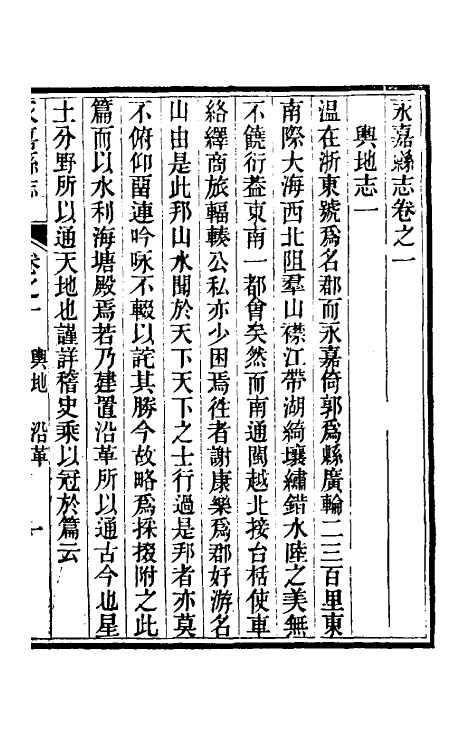 永嘉縣志卷之一
輿地志一
温在浙東號爲名郡而永嘉倚郭爲縣廣輪二三百里東
南際大海西北阻羣山襟江帶湖綺壤繡錯水陸之美無
不饒衍葢東南一都會矣然而南通閩越北接台栝使車
絡繹商旅輻輳公私亦少困焉徃者謝康樂爲郡好游名
山由是此邦山水聞於天下天下之士行過是邦者亦莫
不俯仰留連吟咏不輟以詫其勝今故略爲採掇附之此
篇而以水利海塘殿焉若乃建置沿革所以通古今也星
土分野所以通天地也謹詳稽史乘以冠於篇云
永嘉縣志 卷之一 輿地 沿革 一